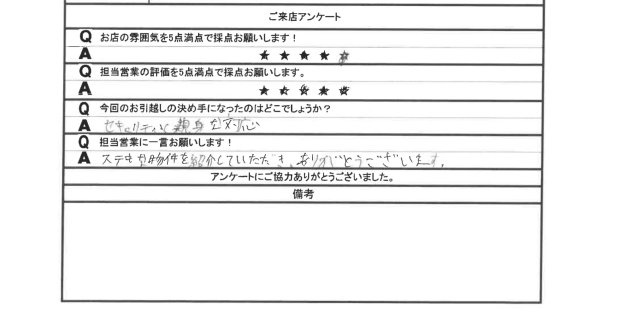 ご来店アンケート
Q お店の雰囲気を5点満点で採点お願いします！
A ★★★★☆
Q 担当営業の評価を5点満点で採点お願いします。
A ★★★★★
Q 今回のお引越しの決め手になったのはどこでしょうか？
A セキュリティと親身な対応
Q 担当営業に一言お願いします！
A ステキな物件を紹介していただき、ありがとうございます。
アンケートにご協力ありがとうございました。
備考